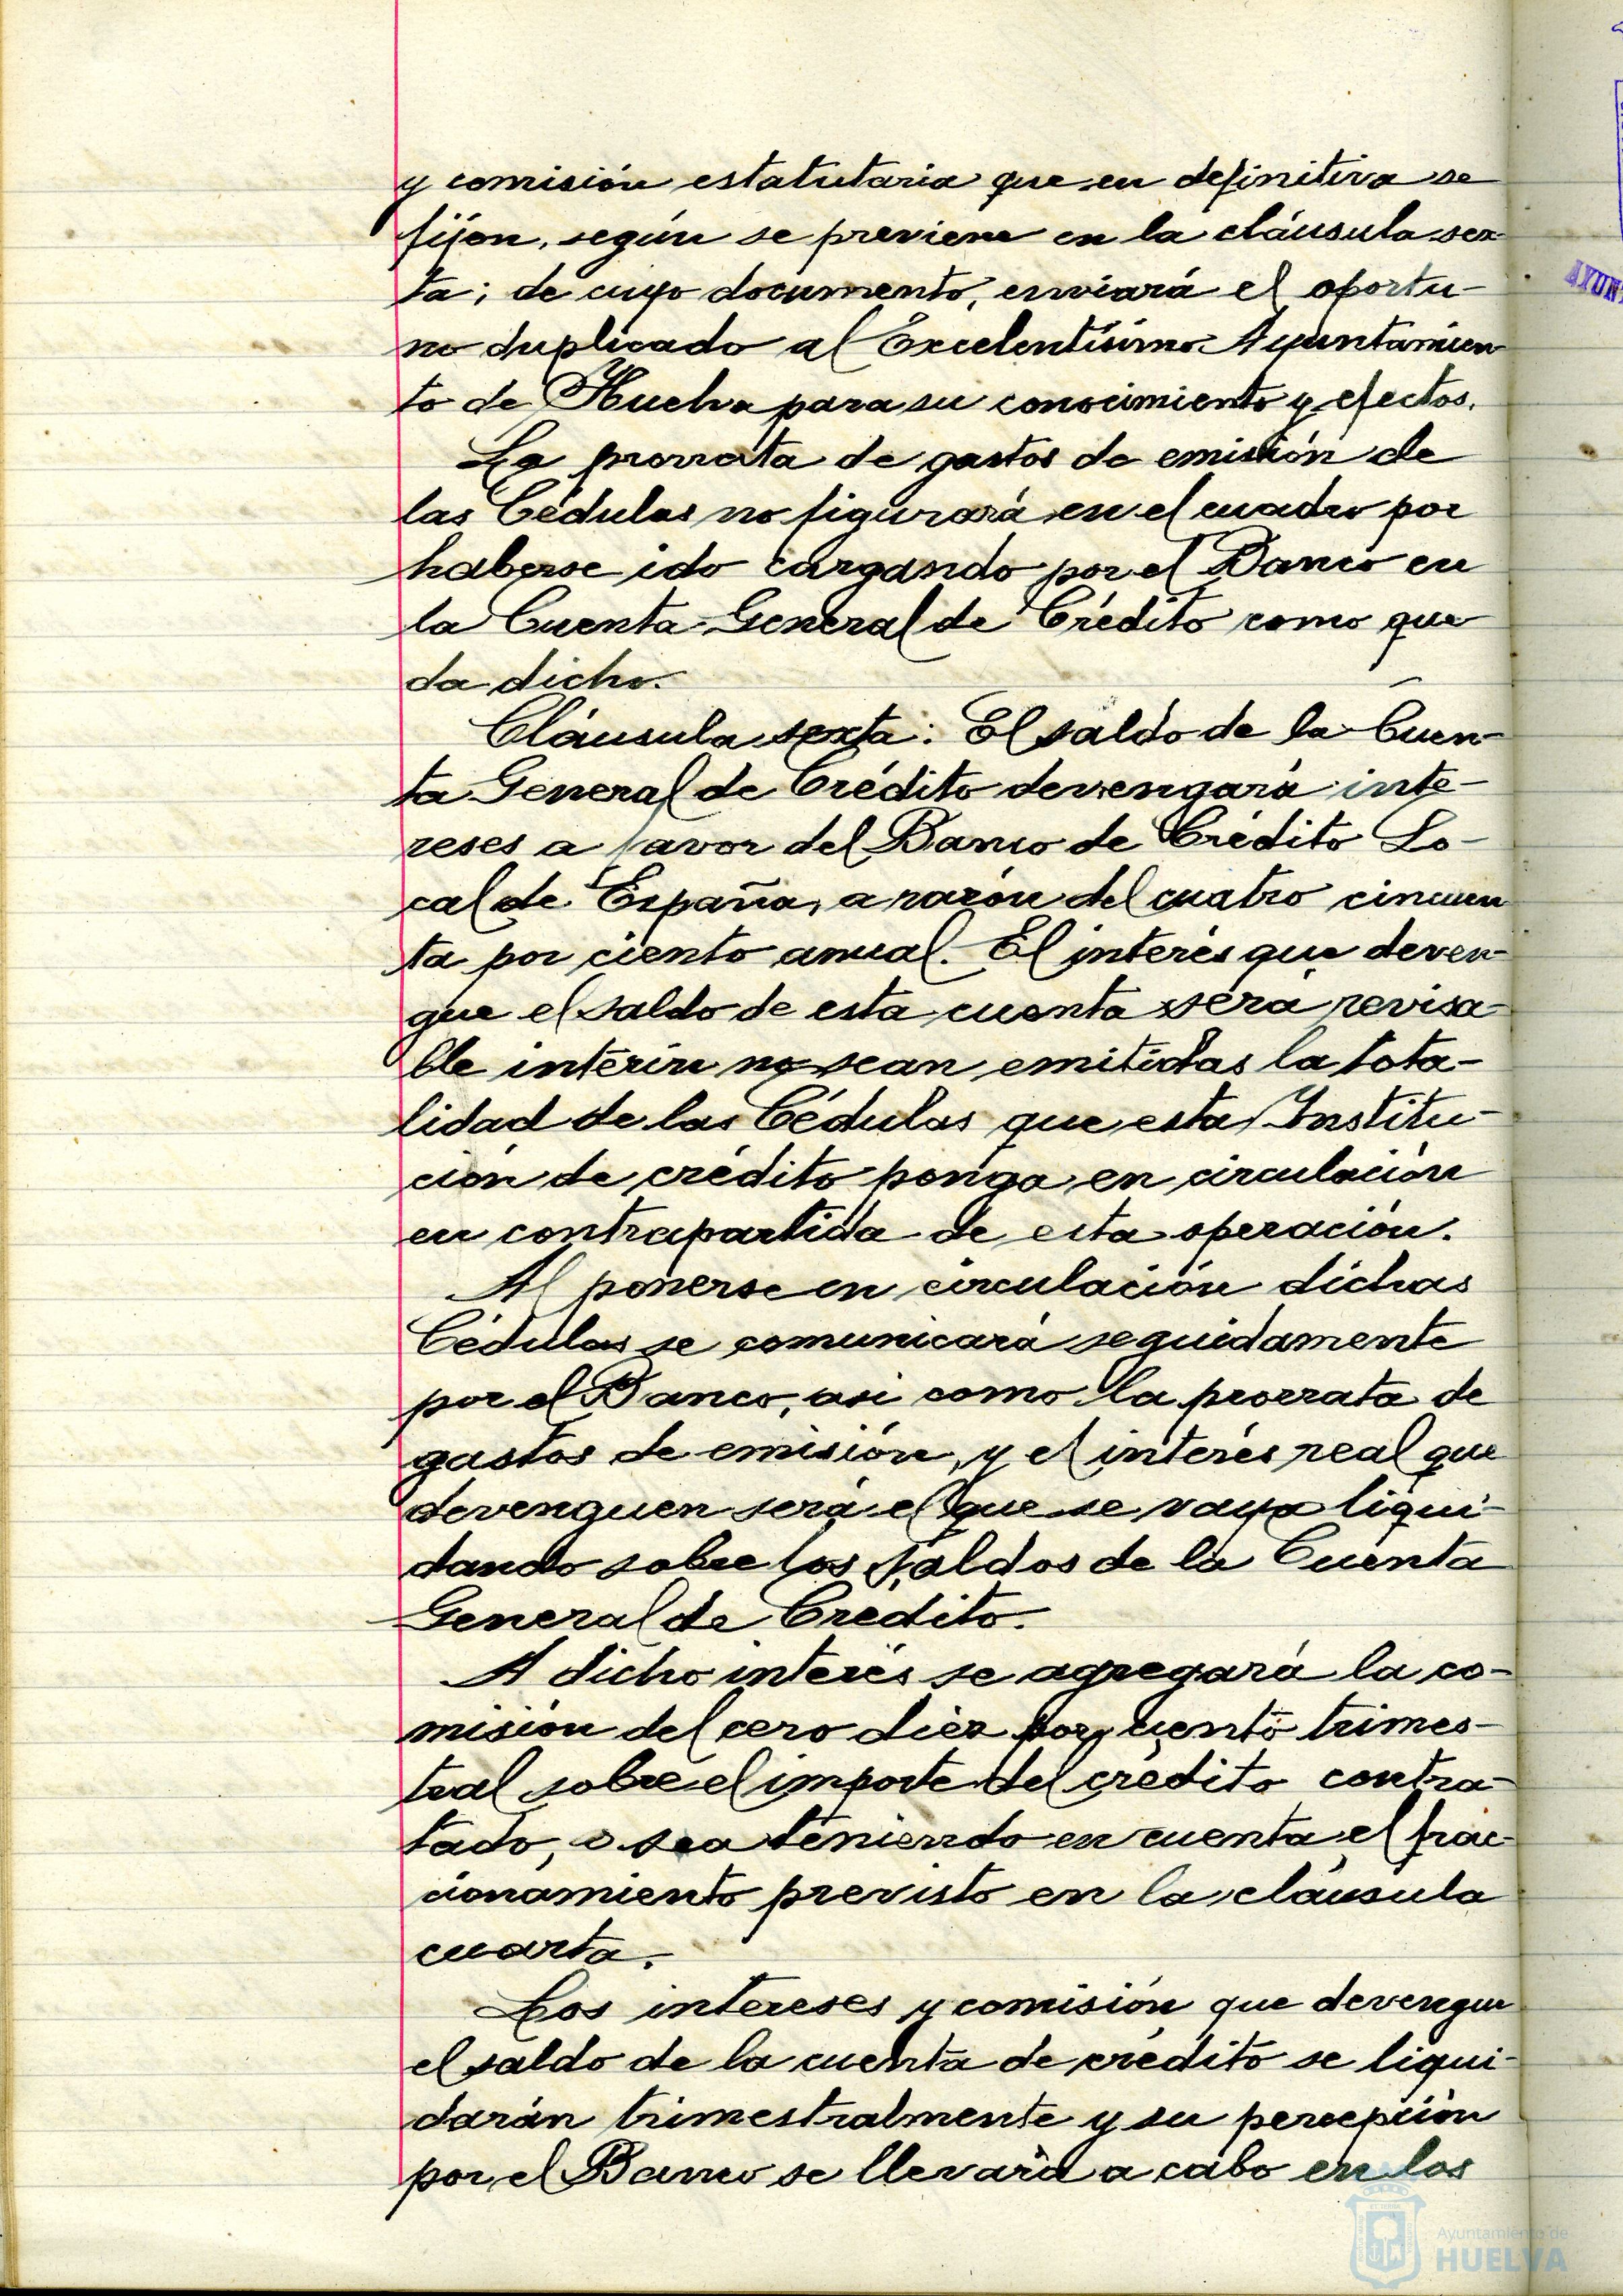 y comisión estatutaria que en definitiva se
fijen, según se previene en la cláusula sex-
ta; de cuyo documento, enviará el oportu-
no duplicado al Excelentísimo Ayuntamien
to de Huelva para su conocimiento y efectos.
La prorrata de gastos de emisión de
las Cédulas no figurará en el cuadro por
haberse ido cargando por el Banco en
la Cuenta General de Crédito como que
da dicho.
Cláusula sexta: El saldo de la Cuen-
ta General de Crédito devengará inte-
reses a favor del Banco de Crédito Lo-
cal de España, a razón del cuatro cincuen
ta por ciento anual. El interés que deven-
gue el saldo de esta cuenta será revisa-
ble interin no sean emitidas la tota-
lidad de las Cédulas que esta Institu-
ción de crédito ponga en circulación
en contrapartida de esta operación.
Al ponerse en circulación dichas
Cédulas se comunicará seguidamente
por el Banco, asi como la prorrata de
gastos de emisión, y el interés real que
devenguen será el que se vaya liqui-
dando sobre los saldos de la Cuenta
General de Crédito.
A dicho interés se agregará la co-
misión del cero diez por ciento trimes-
tral sobre el importe del crédito contra-
tado, o sea teniendo en cuenta el frac-
cionamiento previsto en la cláusula
cuarta.
Los intereses y comisión que devengue
el saldo de la cuenta de crédito se liqui-
darán trimestralmente y su percepción
por el Banco se llevará a cabo en los
AYUN
Ayuntamiento de
HUELVA